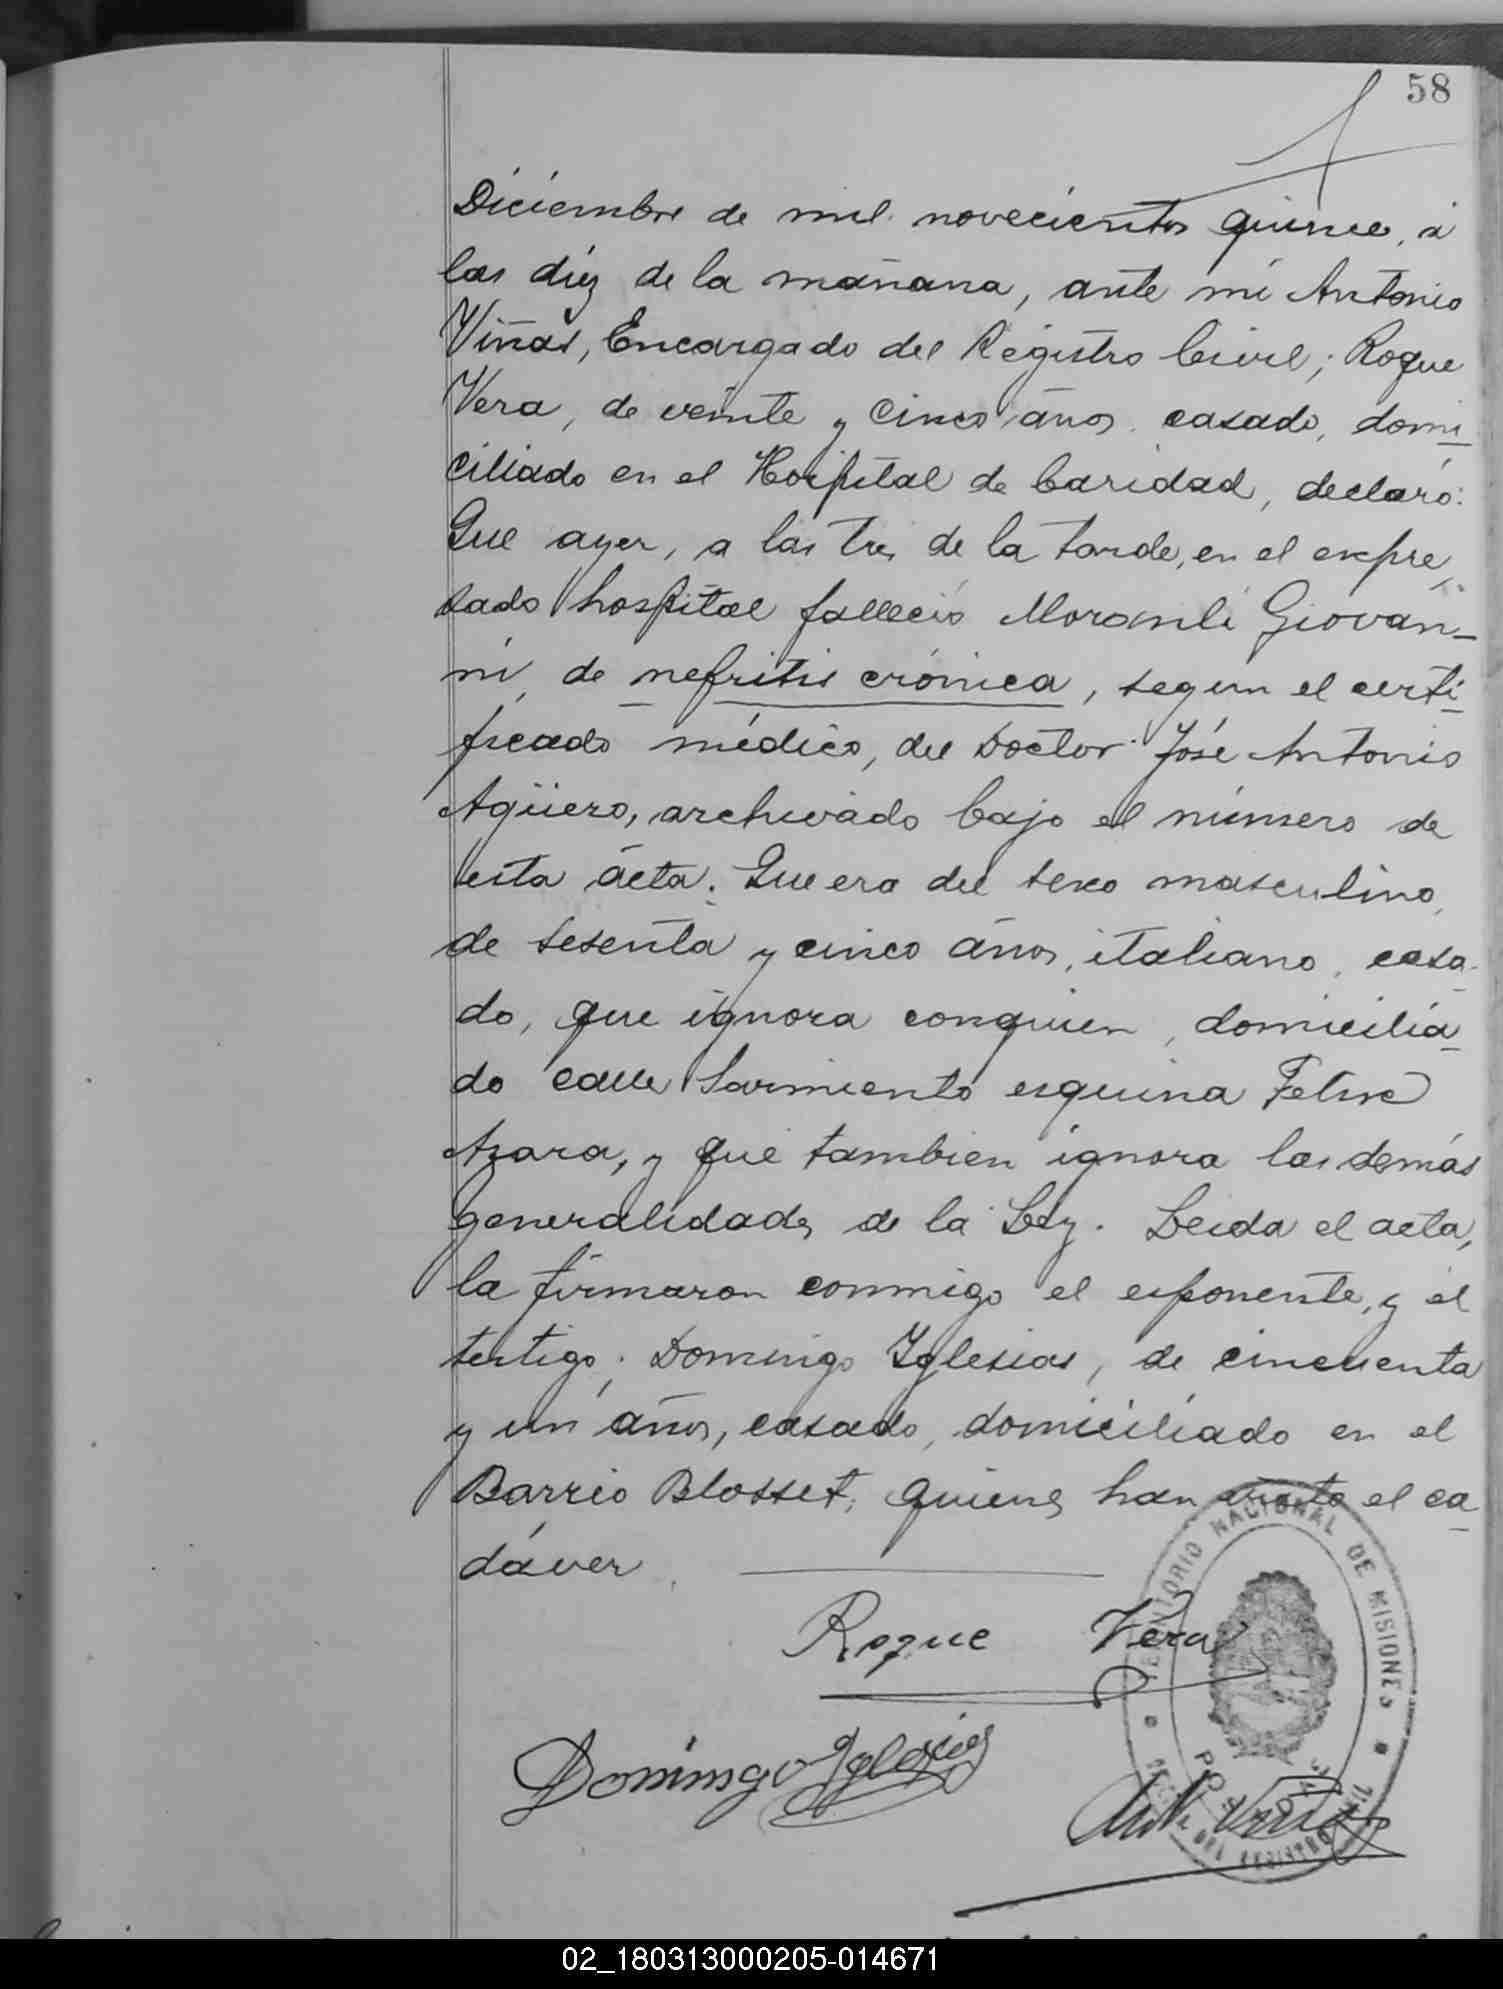 58
Diciembre de mil novecientos quince, á
las diez de la mañana, ante mi Antonio
Viñas, Encargado del Registro Civil; Roque
Vera, de veinte y cinco años, casado, domi-
ciliado en el Hospital de Caridad, declaró:
Que ayer, a las tres de la tarde, en el expre-
sado hospital falleció Moranli Giovan-
ni, de nefritis crónica, segun el certi-
ficado médico, del Doctor José Antonio
Agüero, archivado bajo el número de
esta acta. Que era del sexo masculino,
de sesenta y cinco años, italiano, casa-
do, que ignora conquien, domicilia-
do calle Sarmiento esquina Felix
Azara, y que tambien ignora las demás
generalidades de la Ley. Leida el acta,
la firmaron conmigo el exponente, y el
testigo; Domingo Iglesias, de cincuenta
y un años, casado, domiciliado en el
Barrio Blosset; quienes han visto el ca-
dáver.
Roque Vera
TERRITORIO NACIONAL DE MISIONES
POSADAS
DEL REGISTRO CIVIL
Domingo Iglesias
Ant. Viñas
02_180313000205-014671